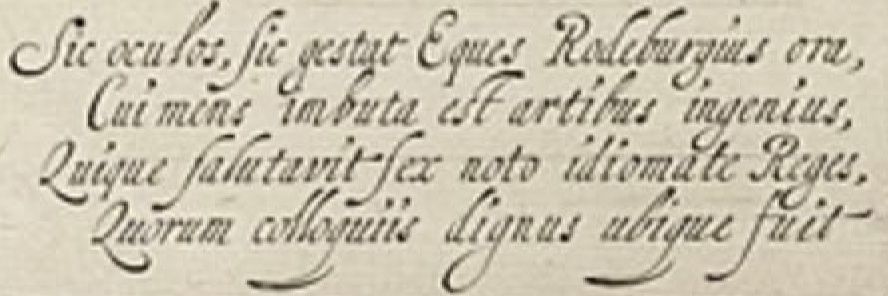 Sic oculos, sic gestat Eques Rodeburgius ora,
Cui mens imbuta est artibus ingenius,
Quique salutavit sex noto idiomate Reges,
Quorum colloquiis dignus ubique fuit